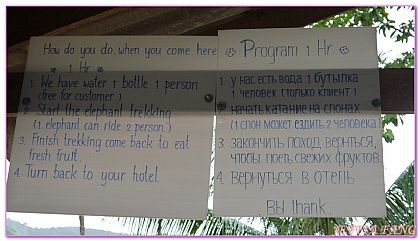 How do you do, when you come here
1 Hr
1. We have water 1 bottle 1 person
(free for customer)
2. Start the elephant trekking
(1 elephant can ride 2 person)
3. Finish trekking come back to eat
fresh fruit.
4. Turn back to your hotel
Program 1 Hr
1. у нас есть вода 1 бутылка
1 человек (только клиент)
начать катание на слонах
(1 слон может ездить 2 человека
3 закончить поход вернться,
чтобы поеть свежих фруктов
4 вернуться в отель
Вы thank.